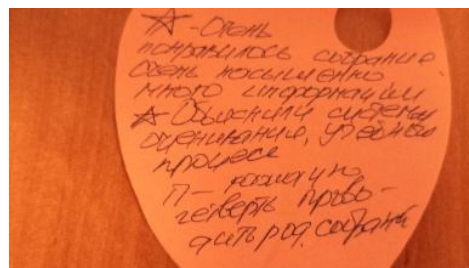 ☆ - Очень
понравилось собрание
очень насыщенно
много информации
☆ Объяснили систему
оценивания, учебный
процесс
П - каждую
четверть прово-
дить род. собрания